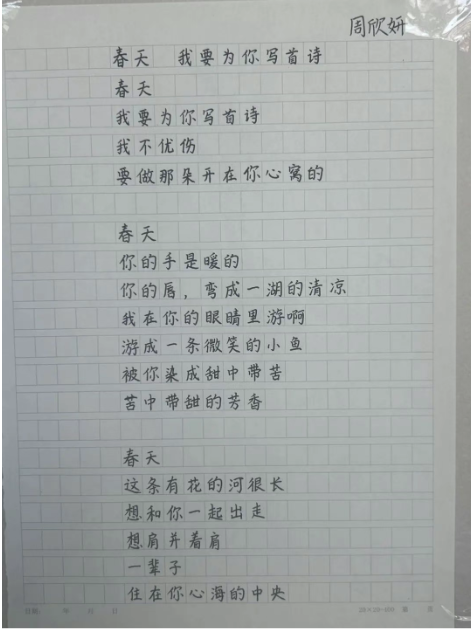 周欣妍
春天 我要为你写首诗
春天
我要为你写首诗
我不优伤
要做那朵开在你心窝的
春天
你的手是暖的
你的唇，弯成一湖的清凉
我在你的眼睛里游啊
游成一条微笑的小鱼
被你染成甜中带苦
苦中带甜的芳香
春天
这条有花的河很长
想和你一起出走
想肩并着肩
一辈子
住在你心海的中央